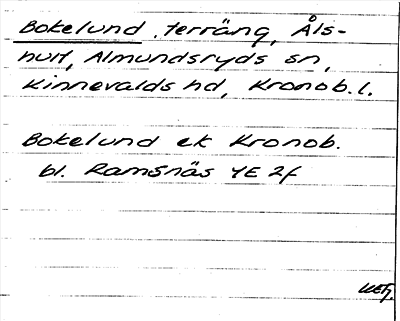 Bokelund, terräng, Åls-
hult, Almundsryds sn,
Kinnevalds hd, Kronob. l.
Bokelund ek Kronob.
bl. Ramsnäs 4E 2f